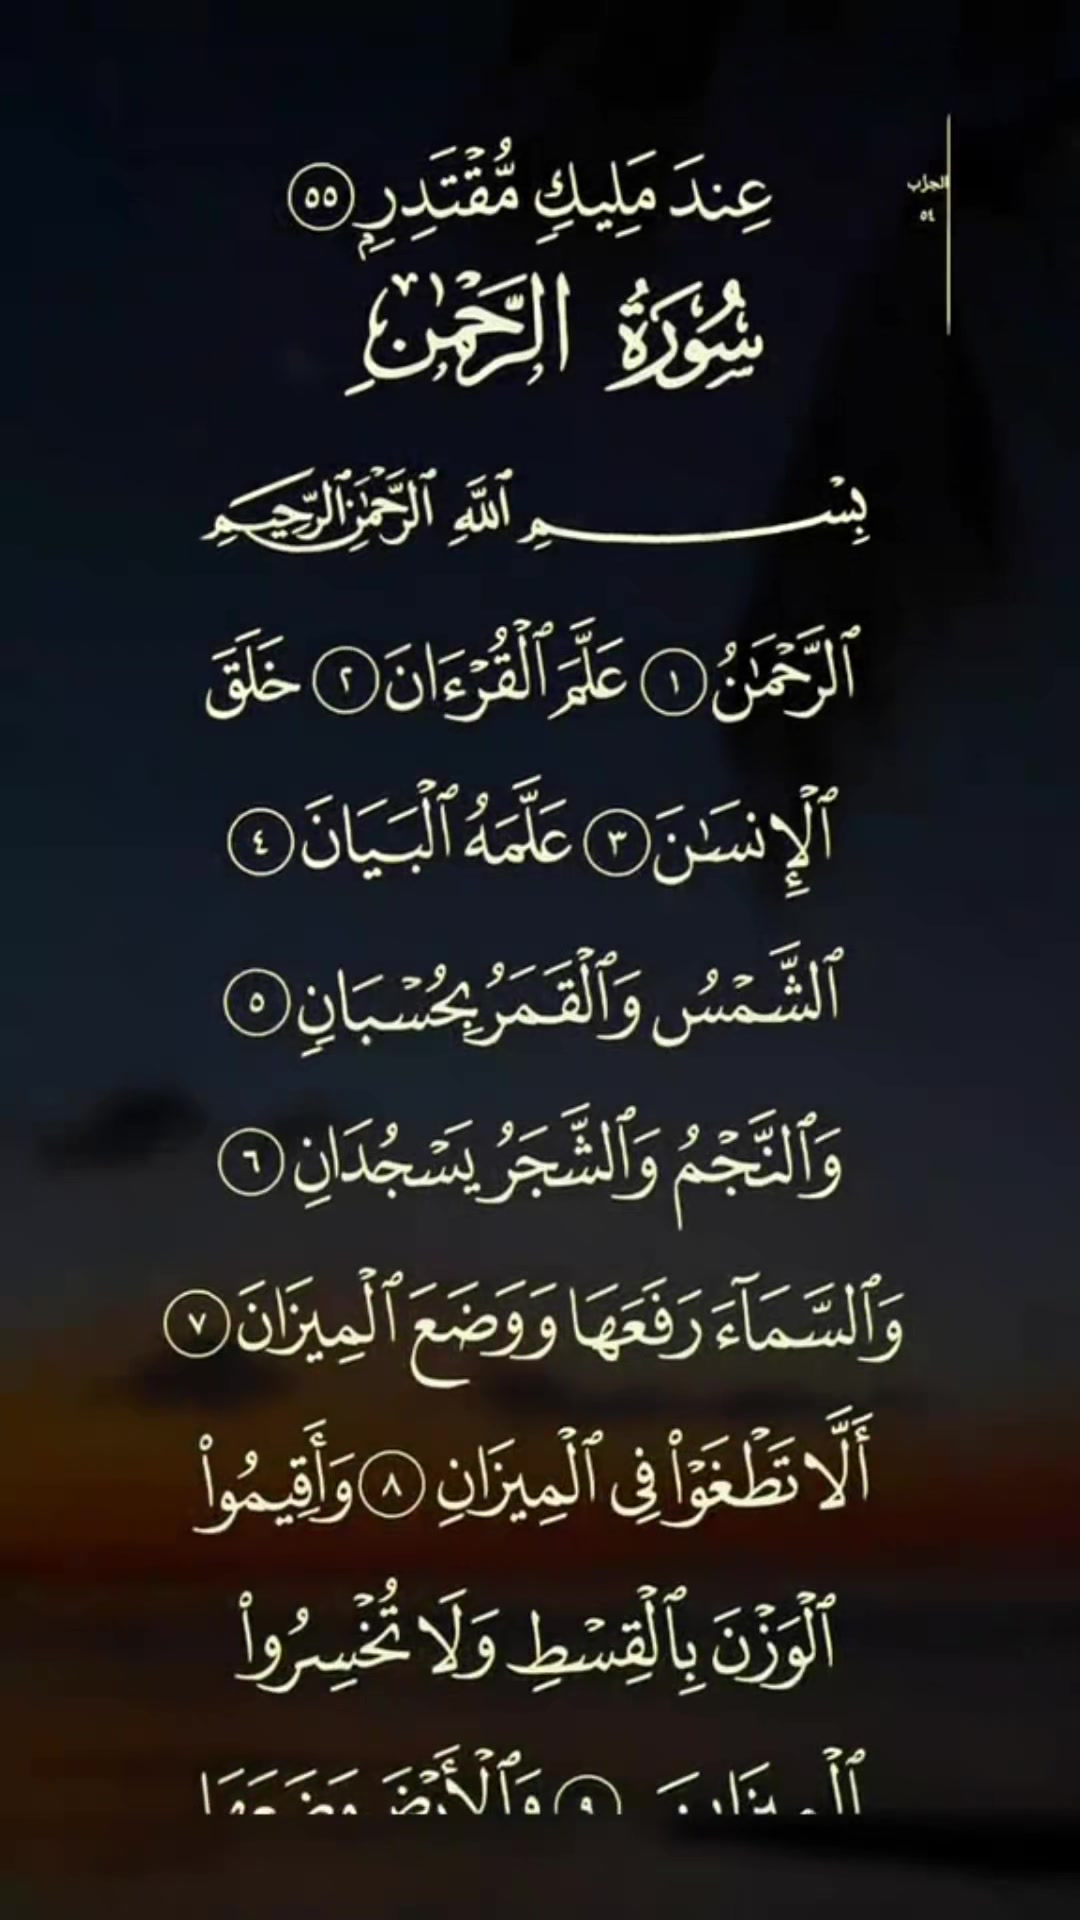 عِندَ مَلِيكٍ مُّقْتَدِرِۭ ٥٥
الحزب
٥٤
سُورَةُ الرَّحْمَٰنِ
بِسْمِ ٱللَّهِ ٱلرَّحْمَٰنِ ٱلرَّحِيمِ
ٱلرَّحْمَٰنُ ١ عَلَّمَ ٱلْقُرْءَانَ ٢ خَلَقَ
ٱلْإِنسَـٰنَ ٣ عَلَّمَهُ ٱلْبَيَانَ ٤
ٱلشَّمْسُ وَٱلْقَمَرُ بِحُسْبَانٍ ٥
وَٱلنَّجْمُ وَٱلشَّجَرُ يَسْجُدَانِ ٦
وَٱلسَّمَآءَ رَفَعَهَا وَوَضَعَ ٱلْمِيزَانَ ٧
أَلَّا تَطْغَوْا۟ فِى ٱلْمِيزَانِ ٨ وَأَقِيمُوا۟
ٱلْوَزْنَ بِٱلْقِسْطِ وَلَا تُخْسِرُوا۟
ٱلْمِيزَانَ ٩ وَٱلْأَرْضَ وَضَعَهَا